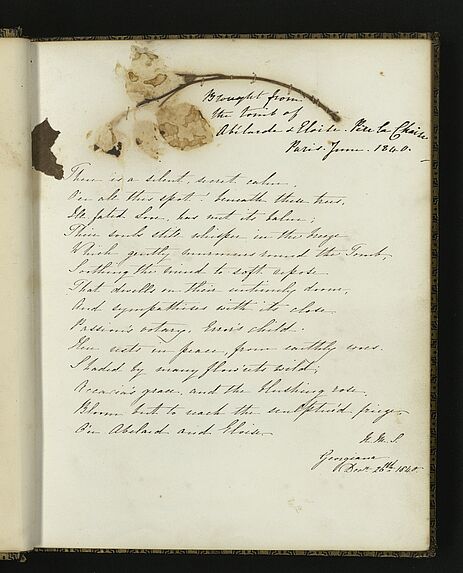 Brought from
the tomb of
Abelarde & Eloise. Pere la Chaise
Paris June. 1840.
There is a silent, secret calm,
O'er all this spot! beneath these trees,
Ill fated Love, has not its balm;
Their souls still whisper in the breeze
Which gently murmurs round the Tomb,
Soothing the mind to soft repose
That dwells on their untimely doom,
And sympathises with its close.
Passion's votary, Error's child.
Here rests in peace, from earthly woes.
Shaded by many flow'rets wild;
Accacia's grace, and the blushing rose
Bloom but to reach the sculptur'd
O'er Abelard and Eloise
M. S.
Georgiana
Decr. 26th 1840.